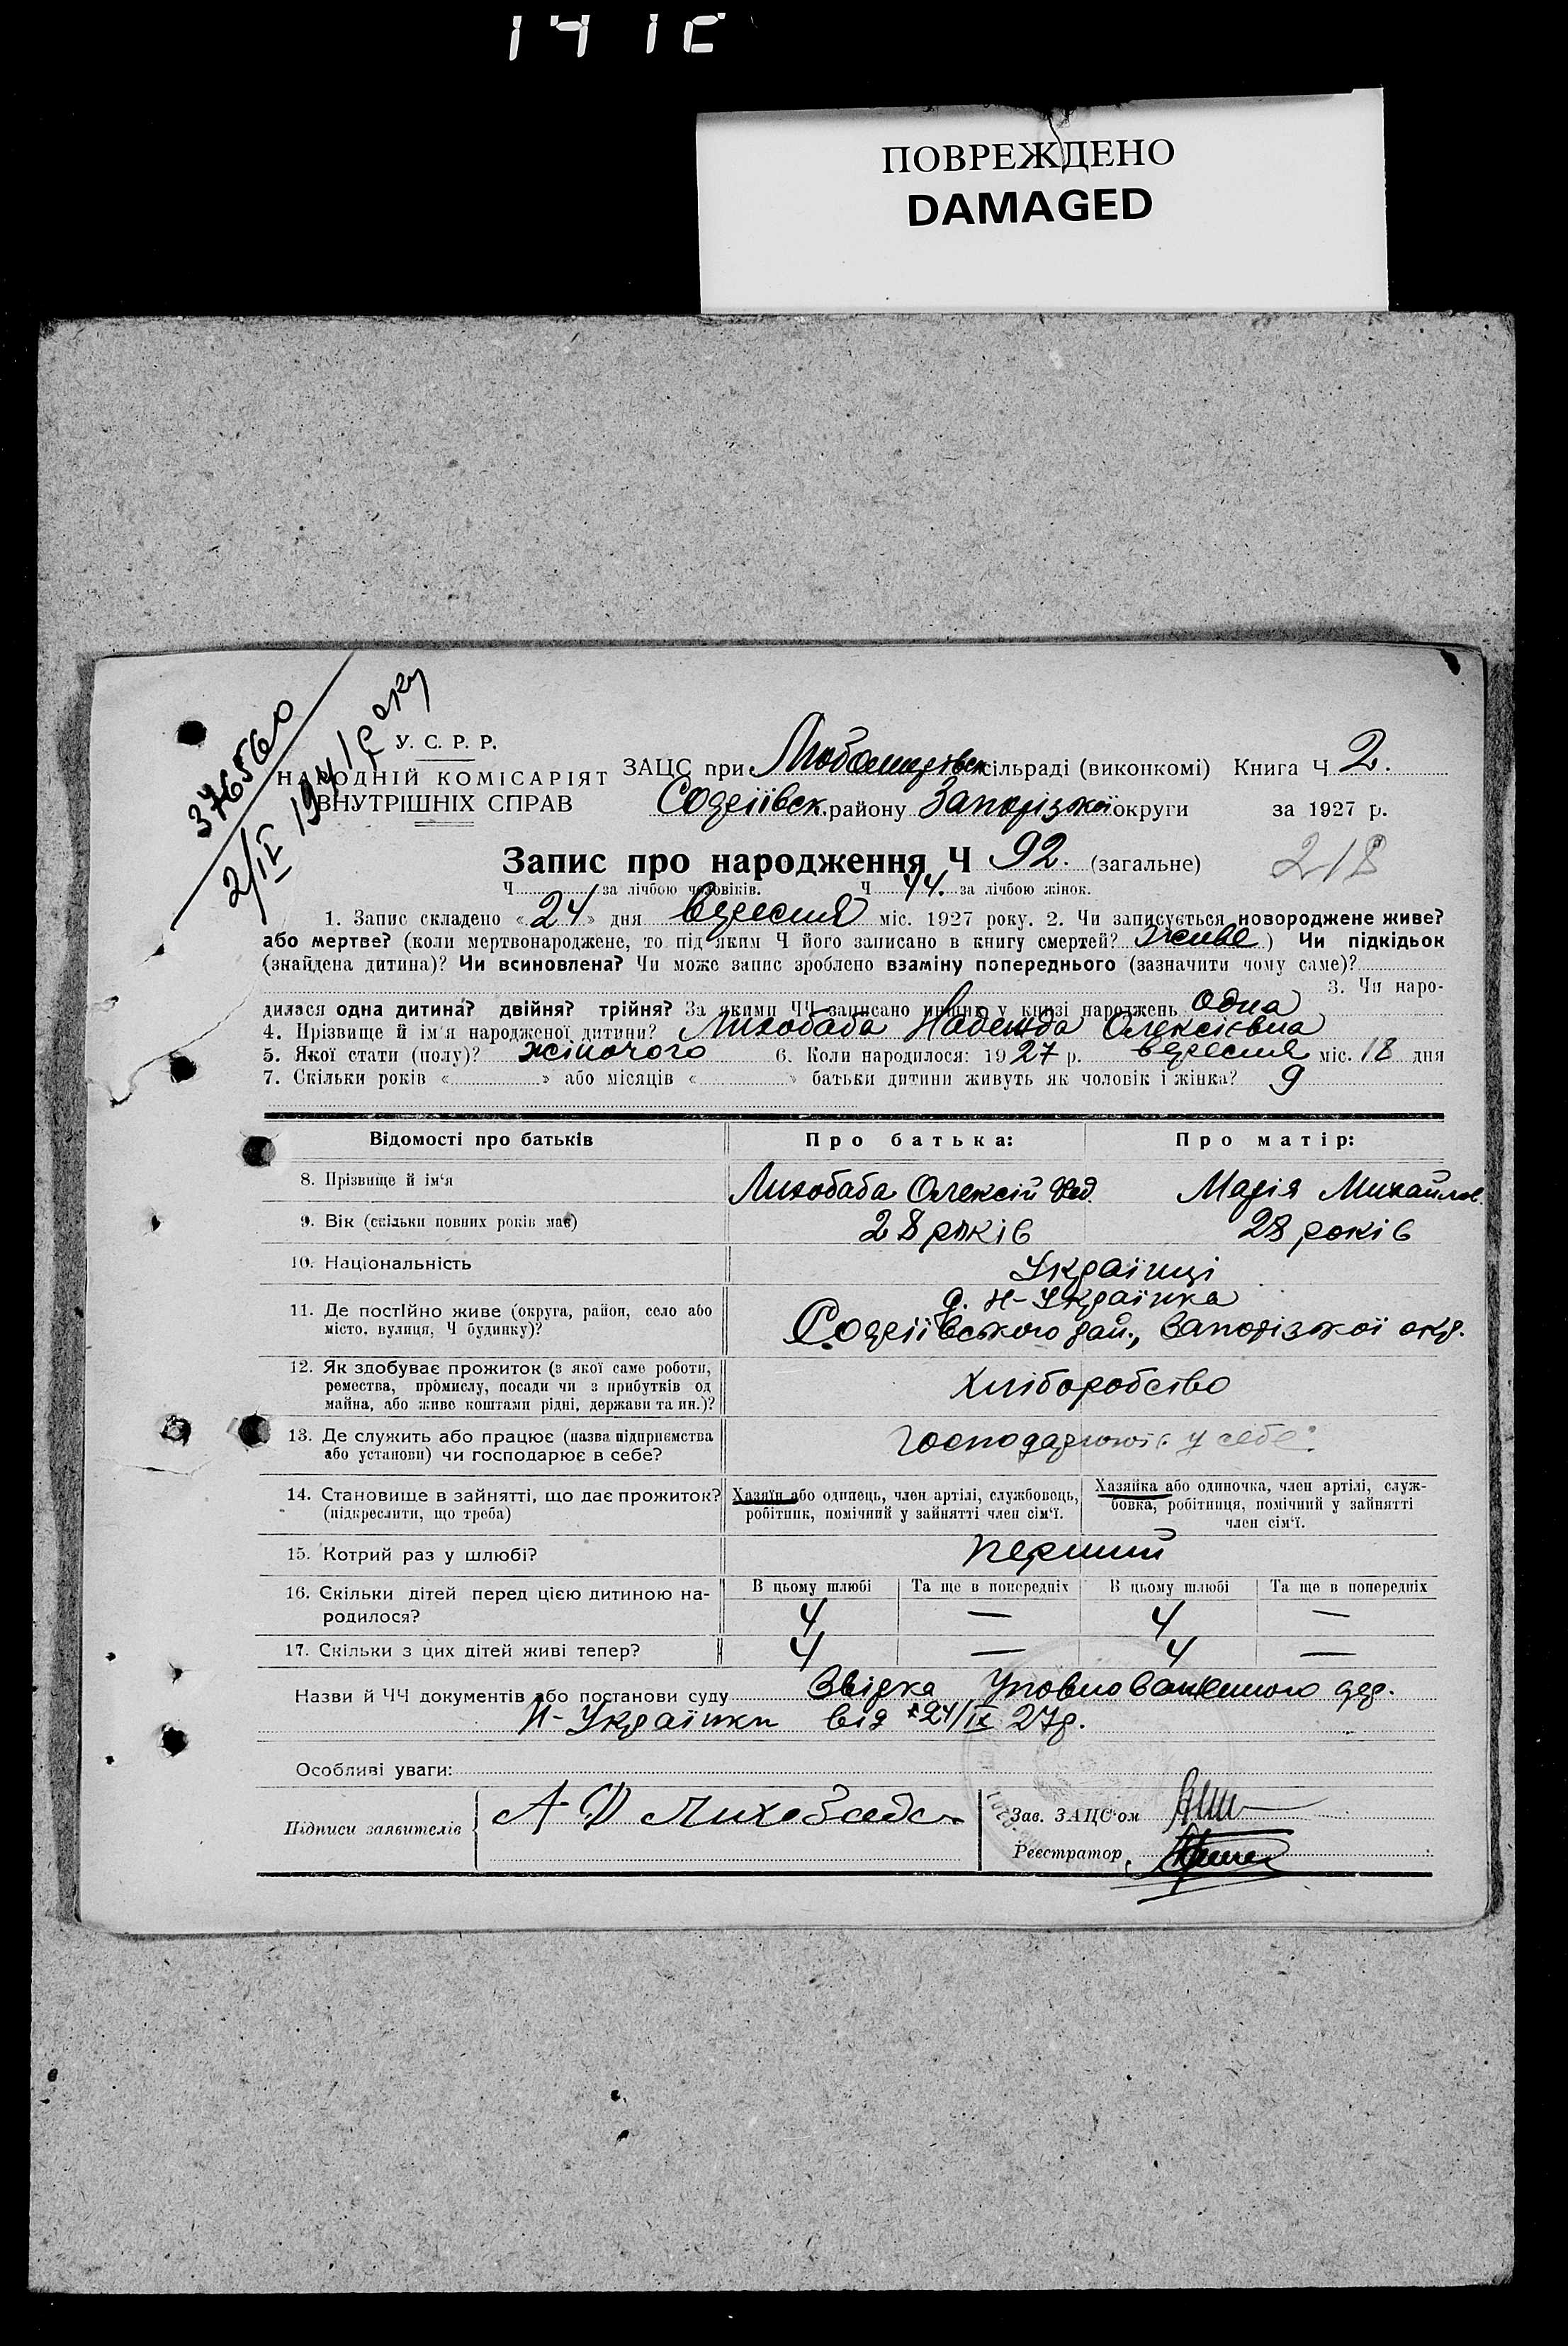 ПОВРЕЖДЕНО
DAMAGED
376560
2/IV 1941 року
У. С. Р. Р.
НАРОДНІЙ КОМІСАРІЯТ
ВНУТРІШНІХ СПРАВ
ЗАЦС при сільраді (виконкомі) Книга Ч 2.
Софіївськ. району Запорізької округи за 1927 р.
Запис про народження Ч 92. (загальне)
218
Ч за лічбою чоловіків. Ч 44. за лічбою жінок.
1. Запис складено «24» дня вересня міс. 1927 року. 2. Чи записується новороджене живе?
або мертве? (коли мертвонароджене, то під яким Ч його записано в книгу смертей? живе) Чи підкідьок
(знайдена дитина)? Чи всиновлена? Чи може запис зроблено взаміну попереднього (зазначити чому саме)?
3. Чи наро-
дилася одна дитина? двійня? трійня? За якими ЧЧ записано инших у книзі народжень одна
4. Прізвище й ім'я народженої дитини? Лихобаба Надежда Олексієвна
5. Якої стати (полу)? жіночого 6. Коли народилося: 1927 р. вересня міс. 18 дня
7. Скільки років « » або місяців « » батьки дитини живуть як чоловік і жінка? 9
Відомості про батьків Про батька: Про матір:
8. Прізвище й ім'я Лихобаба Олексій Фед. Марія Михайлов.
9. Вік (скільки повних років має) 28 років 28 років
10. Національність Українці
11. Де постійно живе (округа, район, село або
місто, вулиця, Ч будинку)?
д. Н-Українка
Софіївського рай., Запорізької окр.
12. Як здобуває прожиток (з якої саме роботи,
ремества, промислу, посади чи з прибутків од
майна, або живе коштами рідні, держави та ин.)?
Хліборобство
13. Де служить або працює (назва підприємства
або установи) чи господарює в себе?
у себе
14. Становище в зайнятті, що дає прожиток?
(підкреслити, що треба)
Хазяїн або одинець, член артілі, службовець,
робітник, помічний у зайнятті член сім'ї.
Хазяйка або одиночка, член артілі, служ-
бовка, робітниця, помічний у зайнятті
член сім'ї.
15. Котрий раз у шлюбі? перший
16. Скільки дітей перед цією дитиною на-
родилося?
В цьому шлюбі Та ще в попередніх В цьому шлюбі Та ще в попередніх
4 — 4 —
17. Скільки з цих дітей живі тепер? 4 — 4 —
Назви й ЧЧ документів або постанови суду Звідка Уповноваженого дер.
Н-Українки від 24/IX 27р.
Особливі уваги:
Підписи заявителів А Ф Лихобаба
Зав. ЗАЦС'ом
Реєстратор